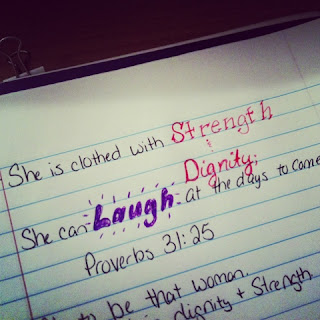 She is clothed with Strength
&
Dignity;
She can Laugh at the days to come
Proverbs 31:25
to be that woman.
dignity + Strength.